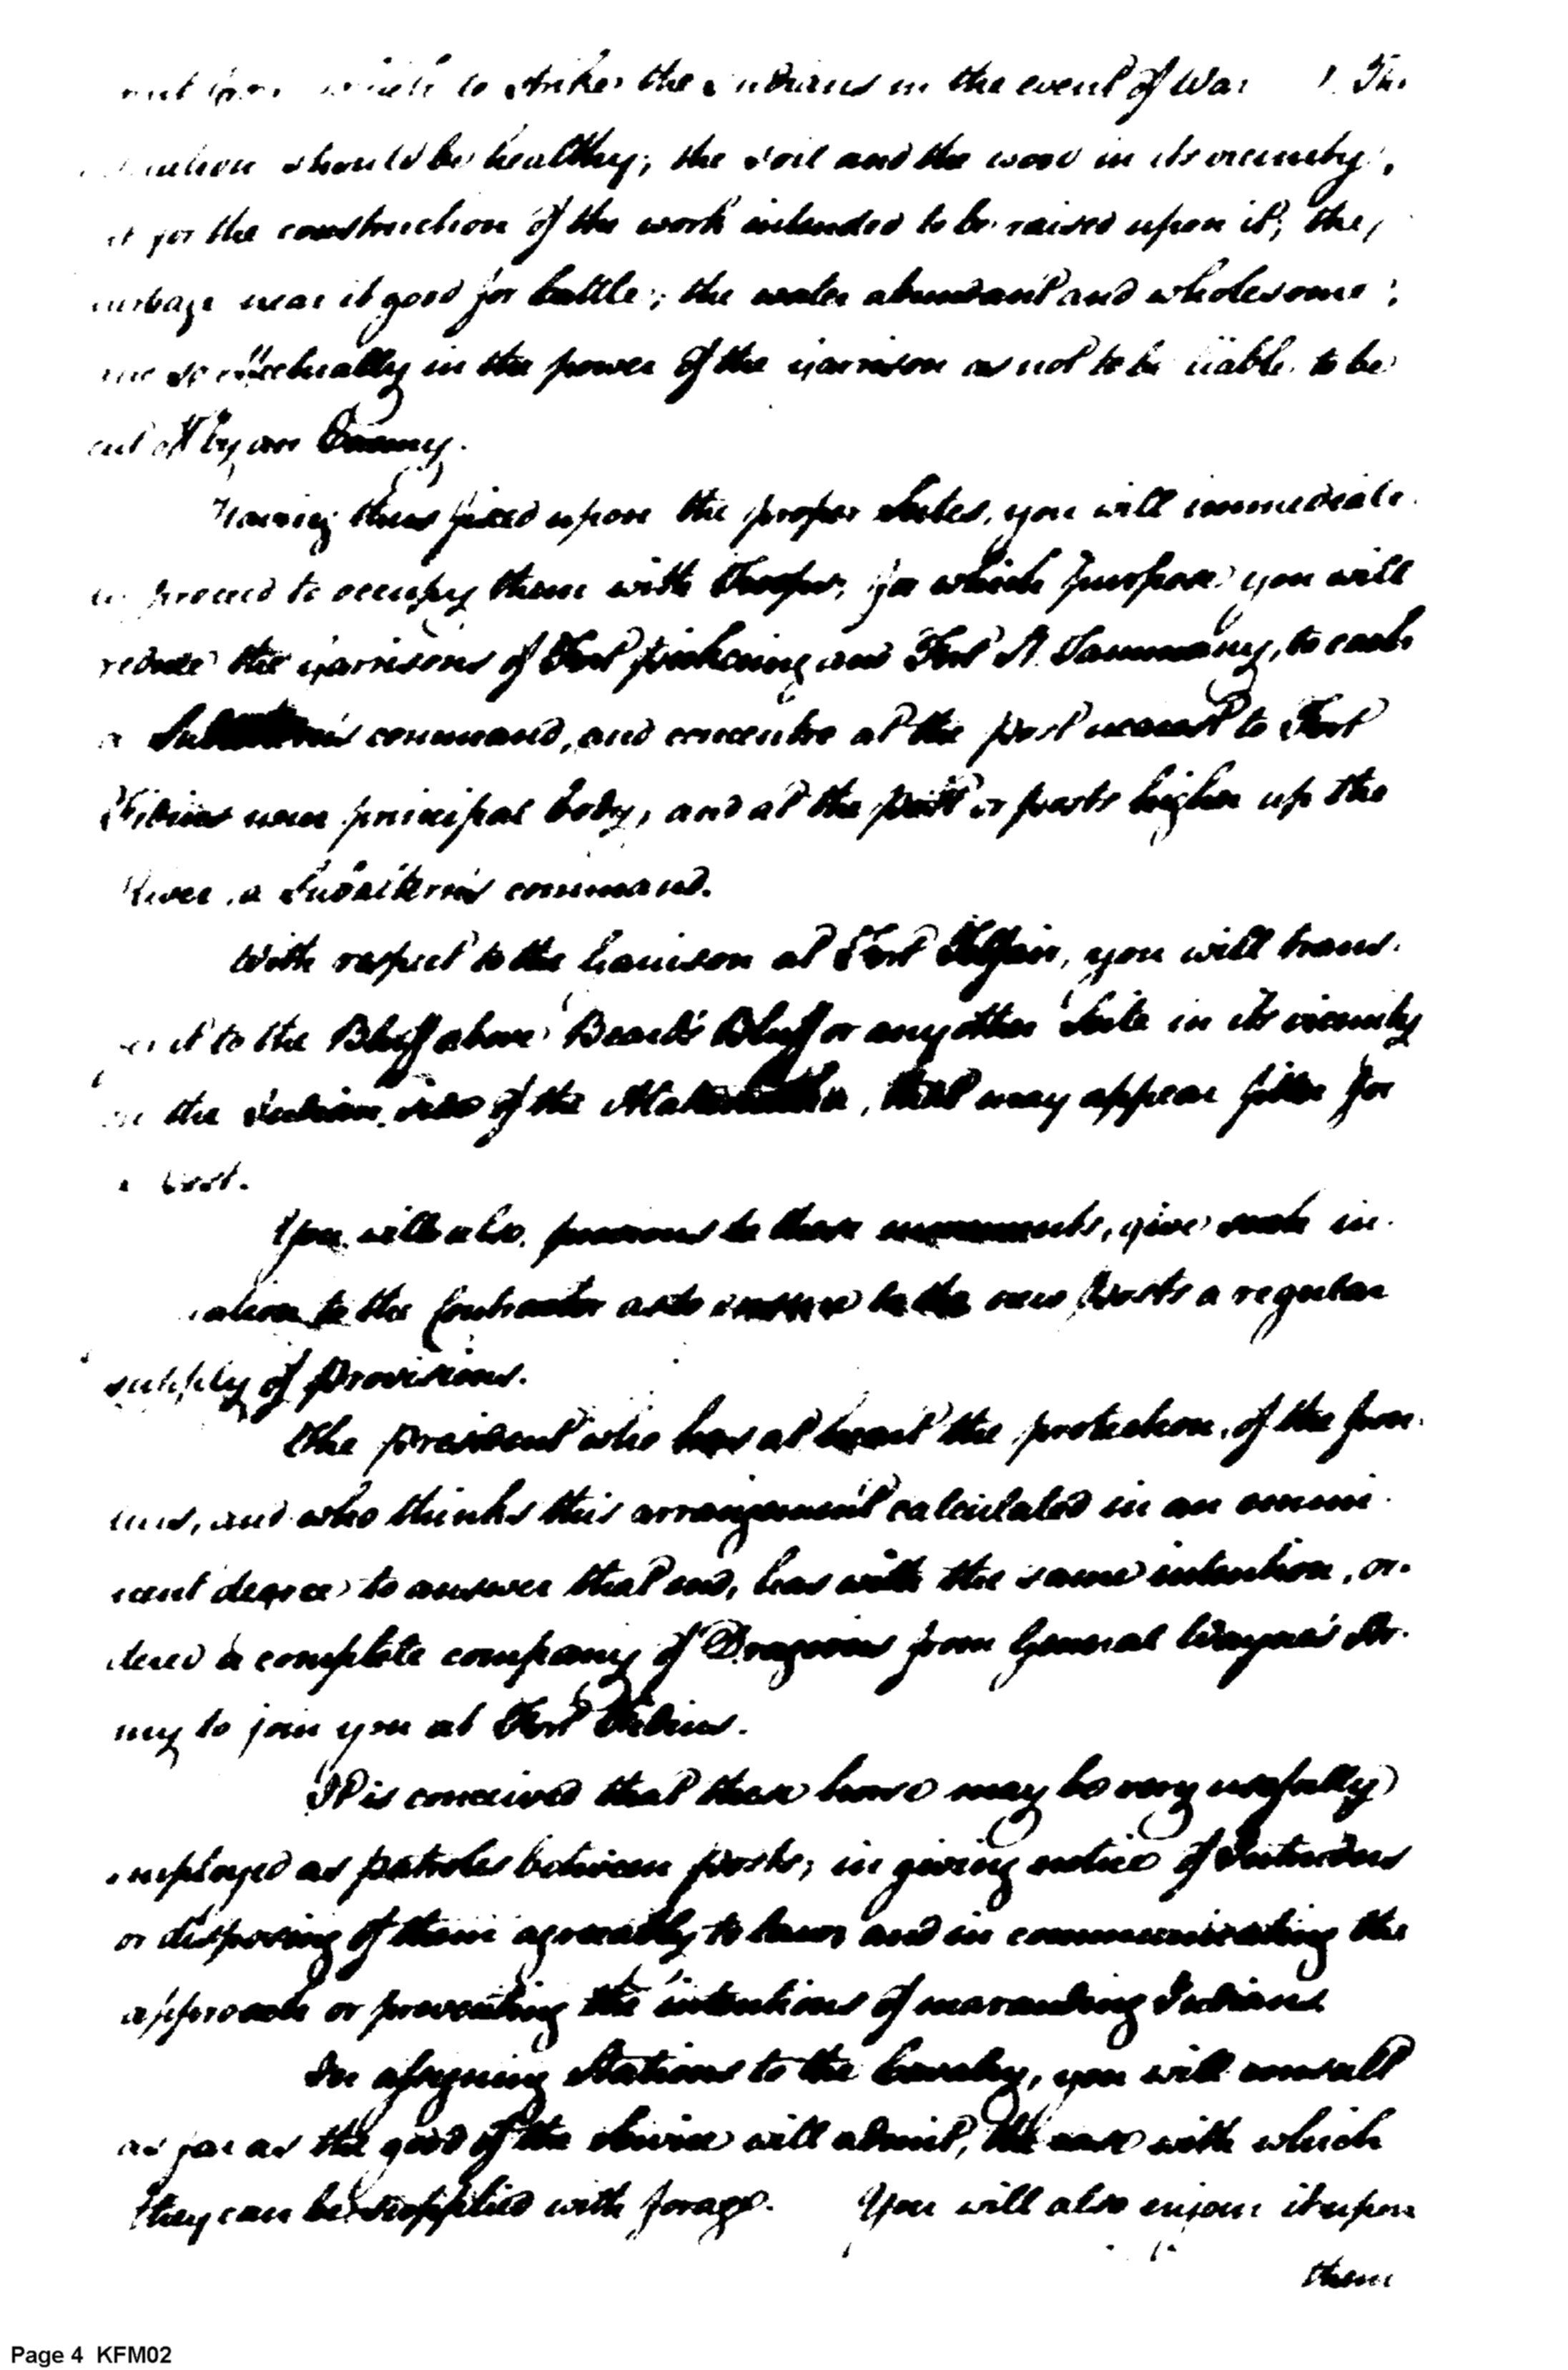 to strike the Indians in the event of War The
should be healthy; the soil and the wood in its vicinity,
for the construction of the work intended to be raised upon it; the
herbage near it good for Cattle; the water abundant and wholesome;
and so effectually in the power of the garrison as not to be liable to be
cut off by an Enemy.
Having thus fixed upon the proper Scites, you will immediate
ly proceed to occupy them with Troops; for which purpose you will
reduce the garrisons of Fort pickering and Fort St. Tammany, to each
a Subaltern's command, and concentre at the post nearest to Fort
Fidius your principal body, and at the post or posts higher up the
River, a Subaltern's command.
With respect to the Garrison at Fort Telfair, you will trans-
it to the Bluff above Beard's Bluff or any other Scite in its vicinity
on the Indian side of the Alatamaha, that may appear fitter for
a Post.
You will also, previous to these movements, give such in-
to the Contractor as to ensure to the new Posts a regular
supply of Provisions.
The President who has at heart the protection of the fron-
tiers, and who thinks this arrangement calculated in an emmi-
nent degree to answer that end, has with the same intention, or-
dered a complete company of Dragoons from General Wayne's Ar-
my to join you at Fort Fidius.
It is conceived that these horse may be very usefully
employed as patroles between posts; in giving notice of Intruders
or disposing of them agreeably to law, and in communicating the
approach or preventing the intentions of marauding Indians
In assigning Stations to the Cavalry, you will consult
as far as the good of the Service will admit, the ease with which
they can be supplied with forage. You will also enjoin it upon
them
Page 4 KFM02